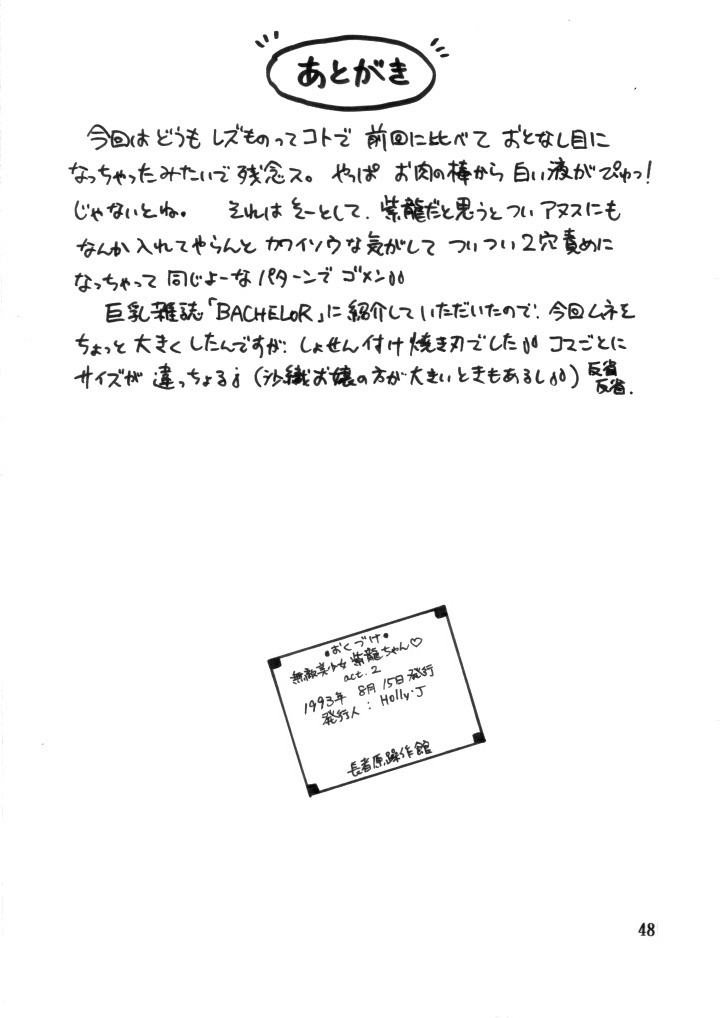 あとがき
今回はどうも レズものってコトで 前回に比べて おとなし目に
なっちゃったみたいで 残念ス。 やっぱ お肉の棒から 白い液がぴゅっ！
じゃないとね。 それはそーとして、紫龍だと思うとつい アヌスにも
なんか 入れてやらんと カワイソウな気がして ついつい 2穴責めに
なっちゃって 同じよーな パターンで ゴメン
巨乳雑誌「BACHELOR」に紹介していただいたので、今回ムネを
ちょっと 大きくしたんですが、しょせん付け焼き刃でした コマごとに
サイズが 違っちょる（沙織お嬢の方が大きいときもあるし）反省
反省.
•おくづけ•
無敵美少女 紫龍ちゃん♡
act. 2
1993年 8月15日発行
発行人：Holly・J
長者原操作館
48